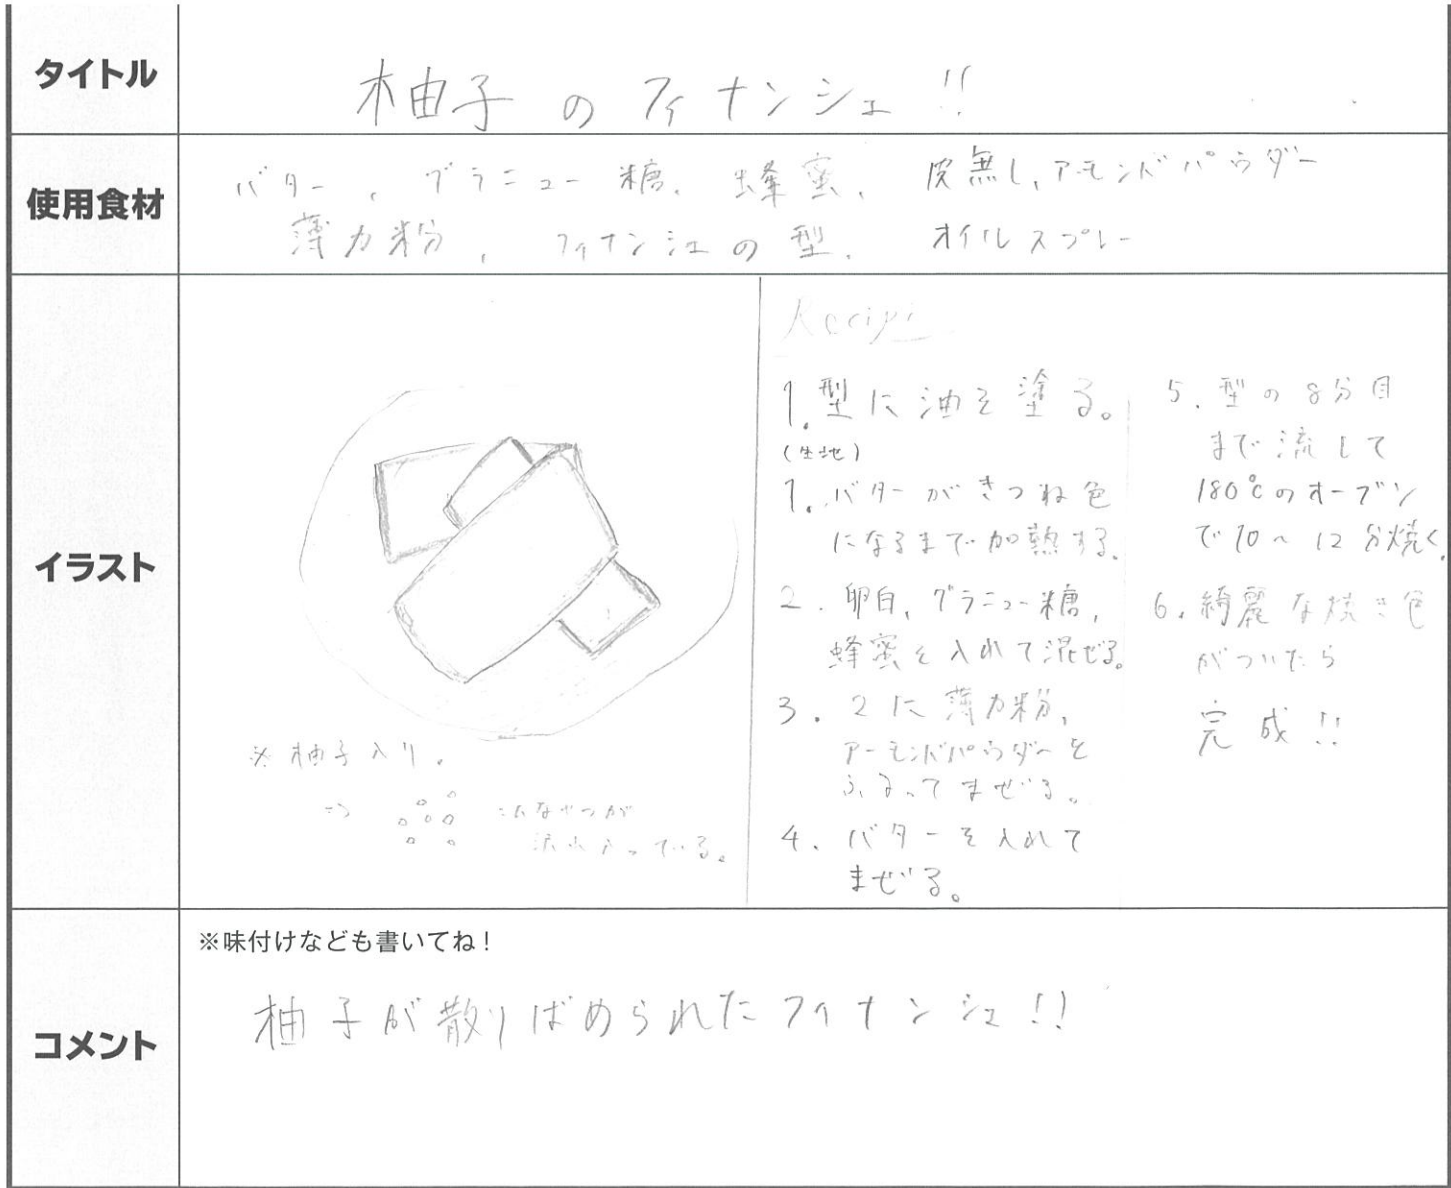 タイトル
柚子のフィナンシェ!!
使用食材
バター、グラニュー糖、蜂蜜、皮無し、アーモンドパウダー
薄力粉、フィナンシェの型、オイルスプレー
イラスト
※柚子入り。
⇒ こんなやつが
沢山入っている。
Recipe
1.型に油を塗る。
(生地)
1.バターがきつね色
になるまで加熱する。
2.卵白、グラニュー糖、
蜂蜜を入れて混ぜる。
3.2に薄力粉、
アーモンドパウダーを
ふるってまぜる。
4.バターを入れて
まぜる。
5.型の8分目
まで流して
180℃のオーブン
で10~12分焼く。
6.綺麗な焼き色
がついたら
完成!!
コメント
※味付けなども書いてね!
柚子が散りばめられたフィナンシェ!!